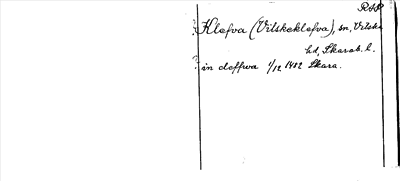 RAP
Klefva (Vilskeklefva), sn, Vilske
hd, Skarab. l.
in cleffwa 1/12 1402 Skara.